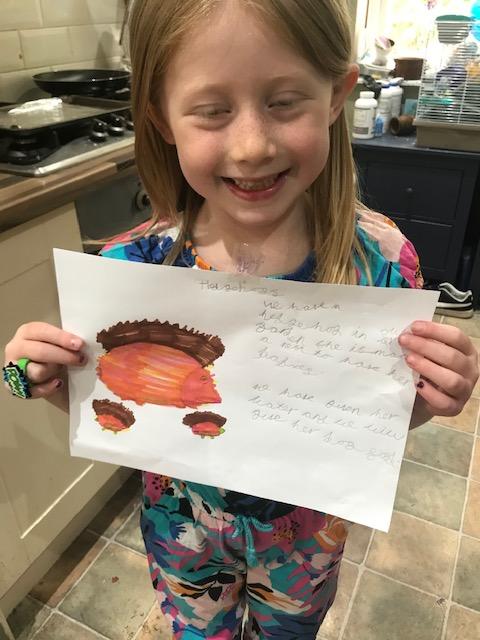 Hedgehogs
We have a
hedgehog in our
garden she is making
a nest to have her
babies.
We have given her
water and we will
give her dog food.